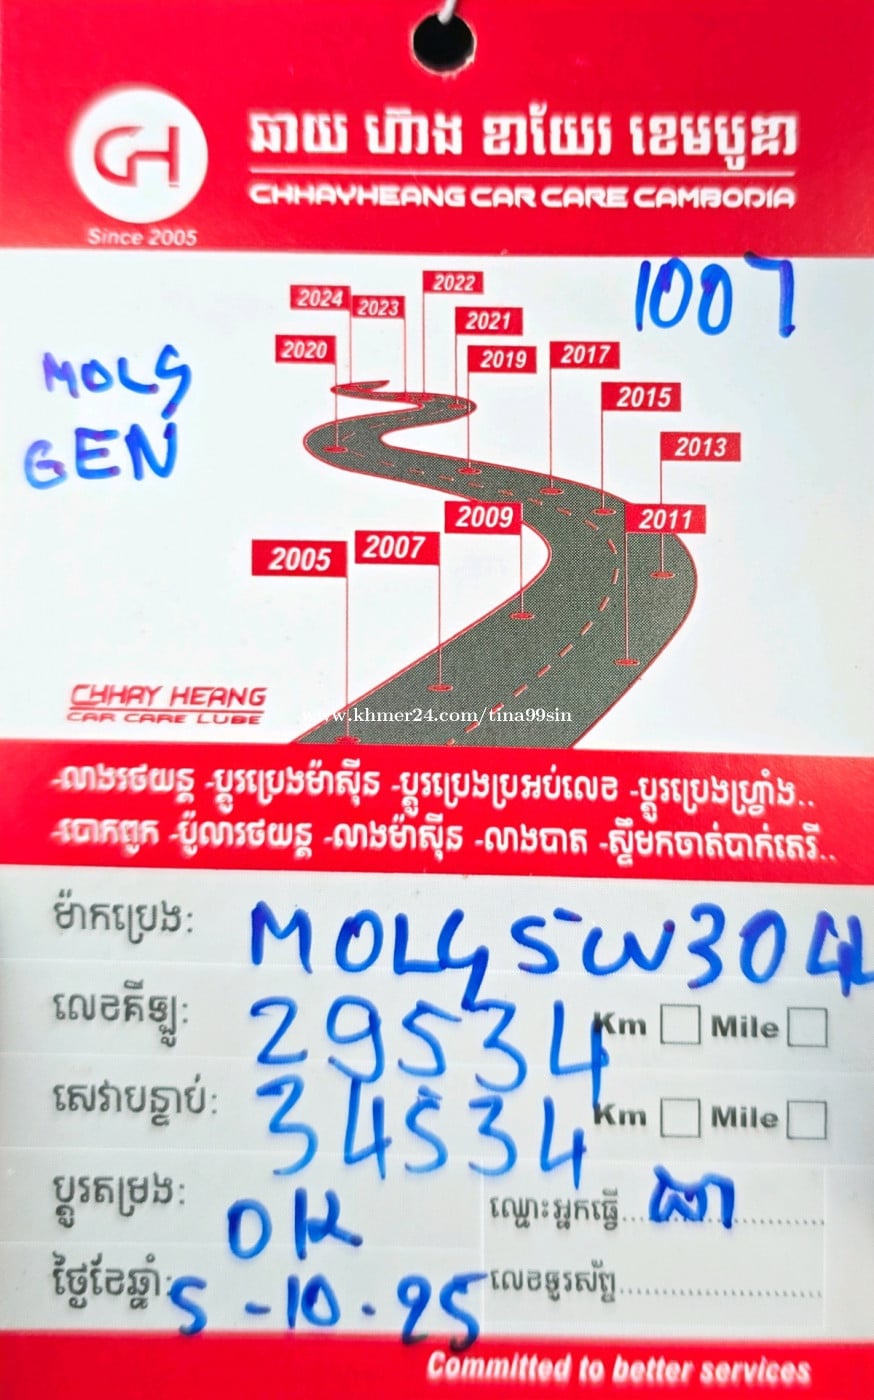 ឆាយ ហ៊ាង ខាយែរ ខេមបូឌា
CH
CHHAYHEANG CAR CARE CAMBODIA
Since 2005
1007
MOLY
GEN
2024
2023
2022
2021
2020
2019
2017
2015
2013
2011
2009
2007
2005
CHHAY HEANG
CAR CARE LUBE
www.khmer24.com/tina99sin
-លាងរថយន្ត -ប្តូរប្រេងម៉ាស៊ីន -ប្តូរប្រេងប្រអប់លេខ -ប្តូរប្រេងហ្វ្រាំង..
-បោកពូក -ប៉ូលារថយន្ត -លាងម៉ាស៊ីន -លាងបាត -ស្ទីមកចាត់បាក់តេរី..
ម៉ាកប្រេង: MOLY 5W30 4L
លេខគីឡូ: 29534 Km Mile
សេវាបន្ទាប់: 34534 Km Mile
ប្តូរតម្រង: OK
ឈ្មោះអ្នកធ្វើ....................
ថ្ងៃខែឆ្នាំ: 5-10-25
លេខទូរស័ព្ទ....................
Committed to better services